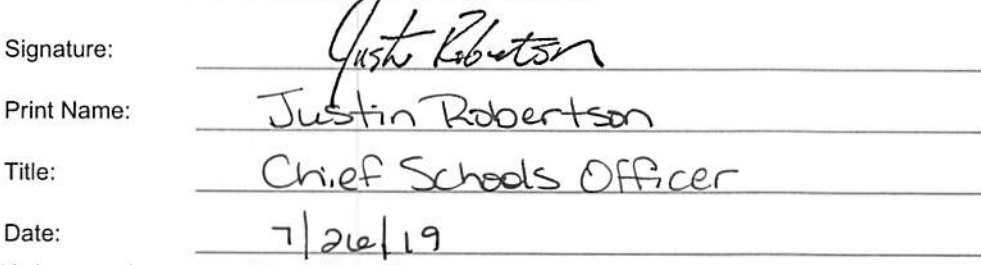 Signature: Justin Robertson
Print Name: Justin Robertson
Title: Chief Schools Officer
Date: 7/26/19